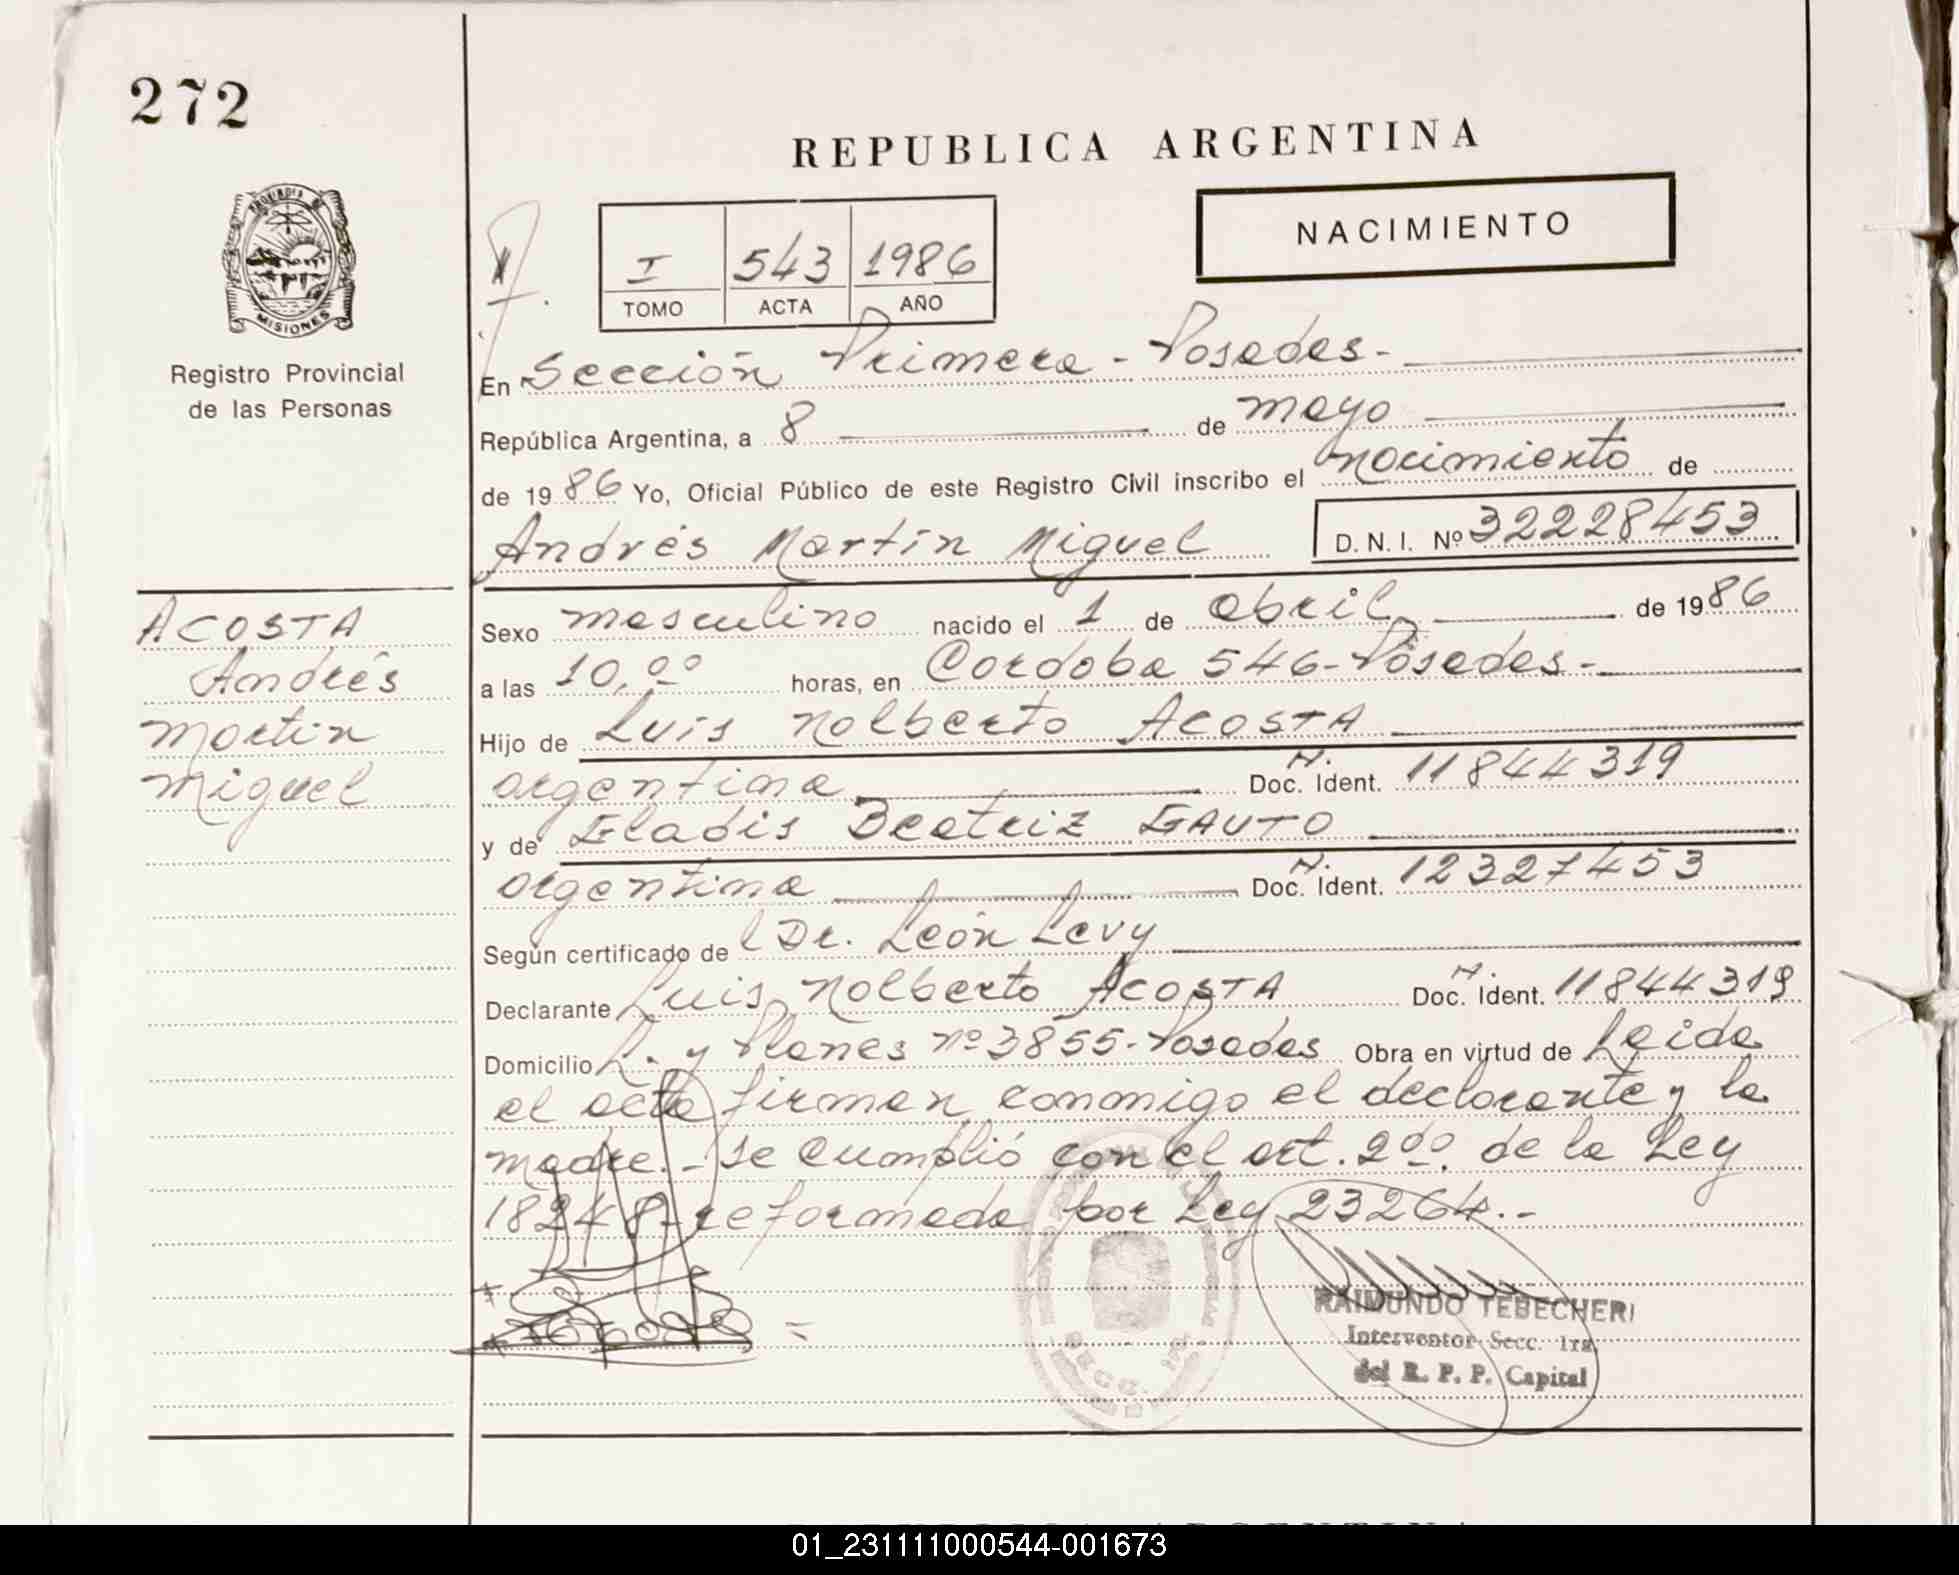 272
REPUBLICA ARGENTINA
NACIMIENTO
I 543 1986
TOMO ACTA AÑO
PROVINCIA D
MISIONES
Registro Provincial
de las Personas
En Sección Primera - Posadas-
República Argentina, a 8 de mayo
de 1986 Yo, Oficial Público de este Registro Civil inscribo el nacimiento de
Andrés Martín Miguel D.N.I. Nº 32228453
ACOSTA
Andrés
Martín
Miguel
Sexo masculino nacido el 1 de abril de 1986
a las 10,00 horas, en Cordoba 546-Posadas-
Hijo de Luis Nolberto ACOSTA
argentina Doc. Ident. M. 11844319
y de Gladis Beatriz GAUTO
argentina Doc. Ident. M. 12327453
Según certificado de l Dr. León Levy
Declarante Luis Nolberto ACOSTA Doc. Ident. M. 11844319
Domicilio L. y Planes Nº 3855-Posadas Obra en virtud de Leida
el acta firman conmigo el declarante y la
madre.- Se cumplió con el art. 2do. de la Ley
18248 reformada por Ley 23264.-
RAIMUNDO TEBECHERI
Interventor Secc. 1ra.
del R. P. P. Capital
SECC. 1ra
REPUBLICA ARGENTINA
01_231111000544-001673